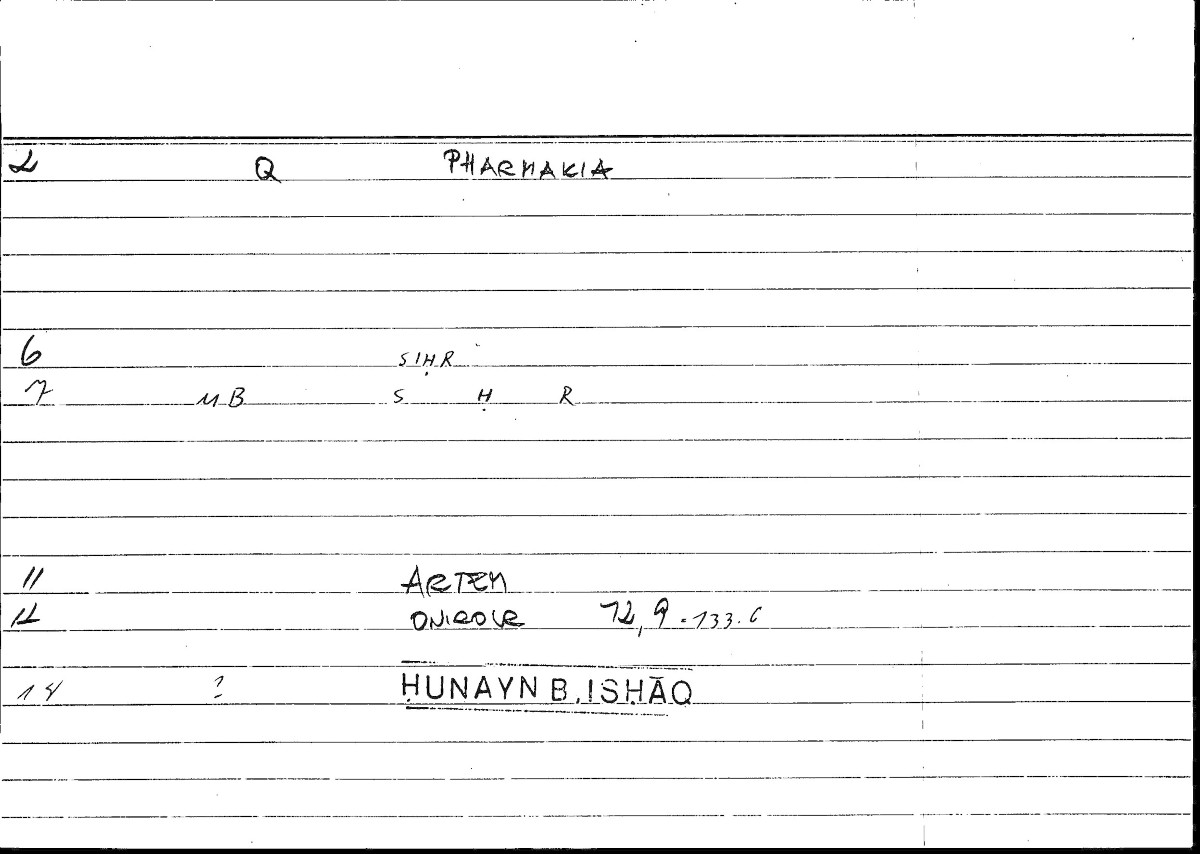 2 Q PHARMAKIA
6 SIḤR
7 MB S Ḥ R
11 ARTEM
12 ONIROCR 72,9-133.6
14 ? ḤUNAYN B. ISḤĀQ